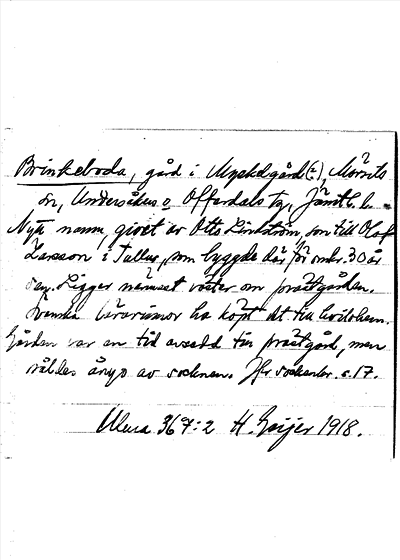 Brinkeboda, gård i Myckelgård(?), Mörsils
sn, Undersåkers o Offerdals tg, Jämtl. l.
Nytt namn, givet av Otto Lindström, son till Olof
Larsson i Tullus, som byggde där för omkr. 30 år
sen. Ligger närmast väster om prästgården.
Svenska lärarinnor ha köpt det till hvilohem.
Gården var en tid avsedd till prästgård, men
såldes ånyo av socknen. Jfr sockenbr. s. 17.
Ulma 367:2 H. Geijer 1918.